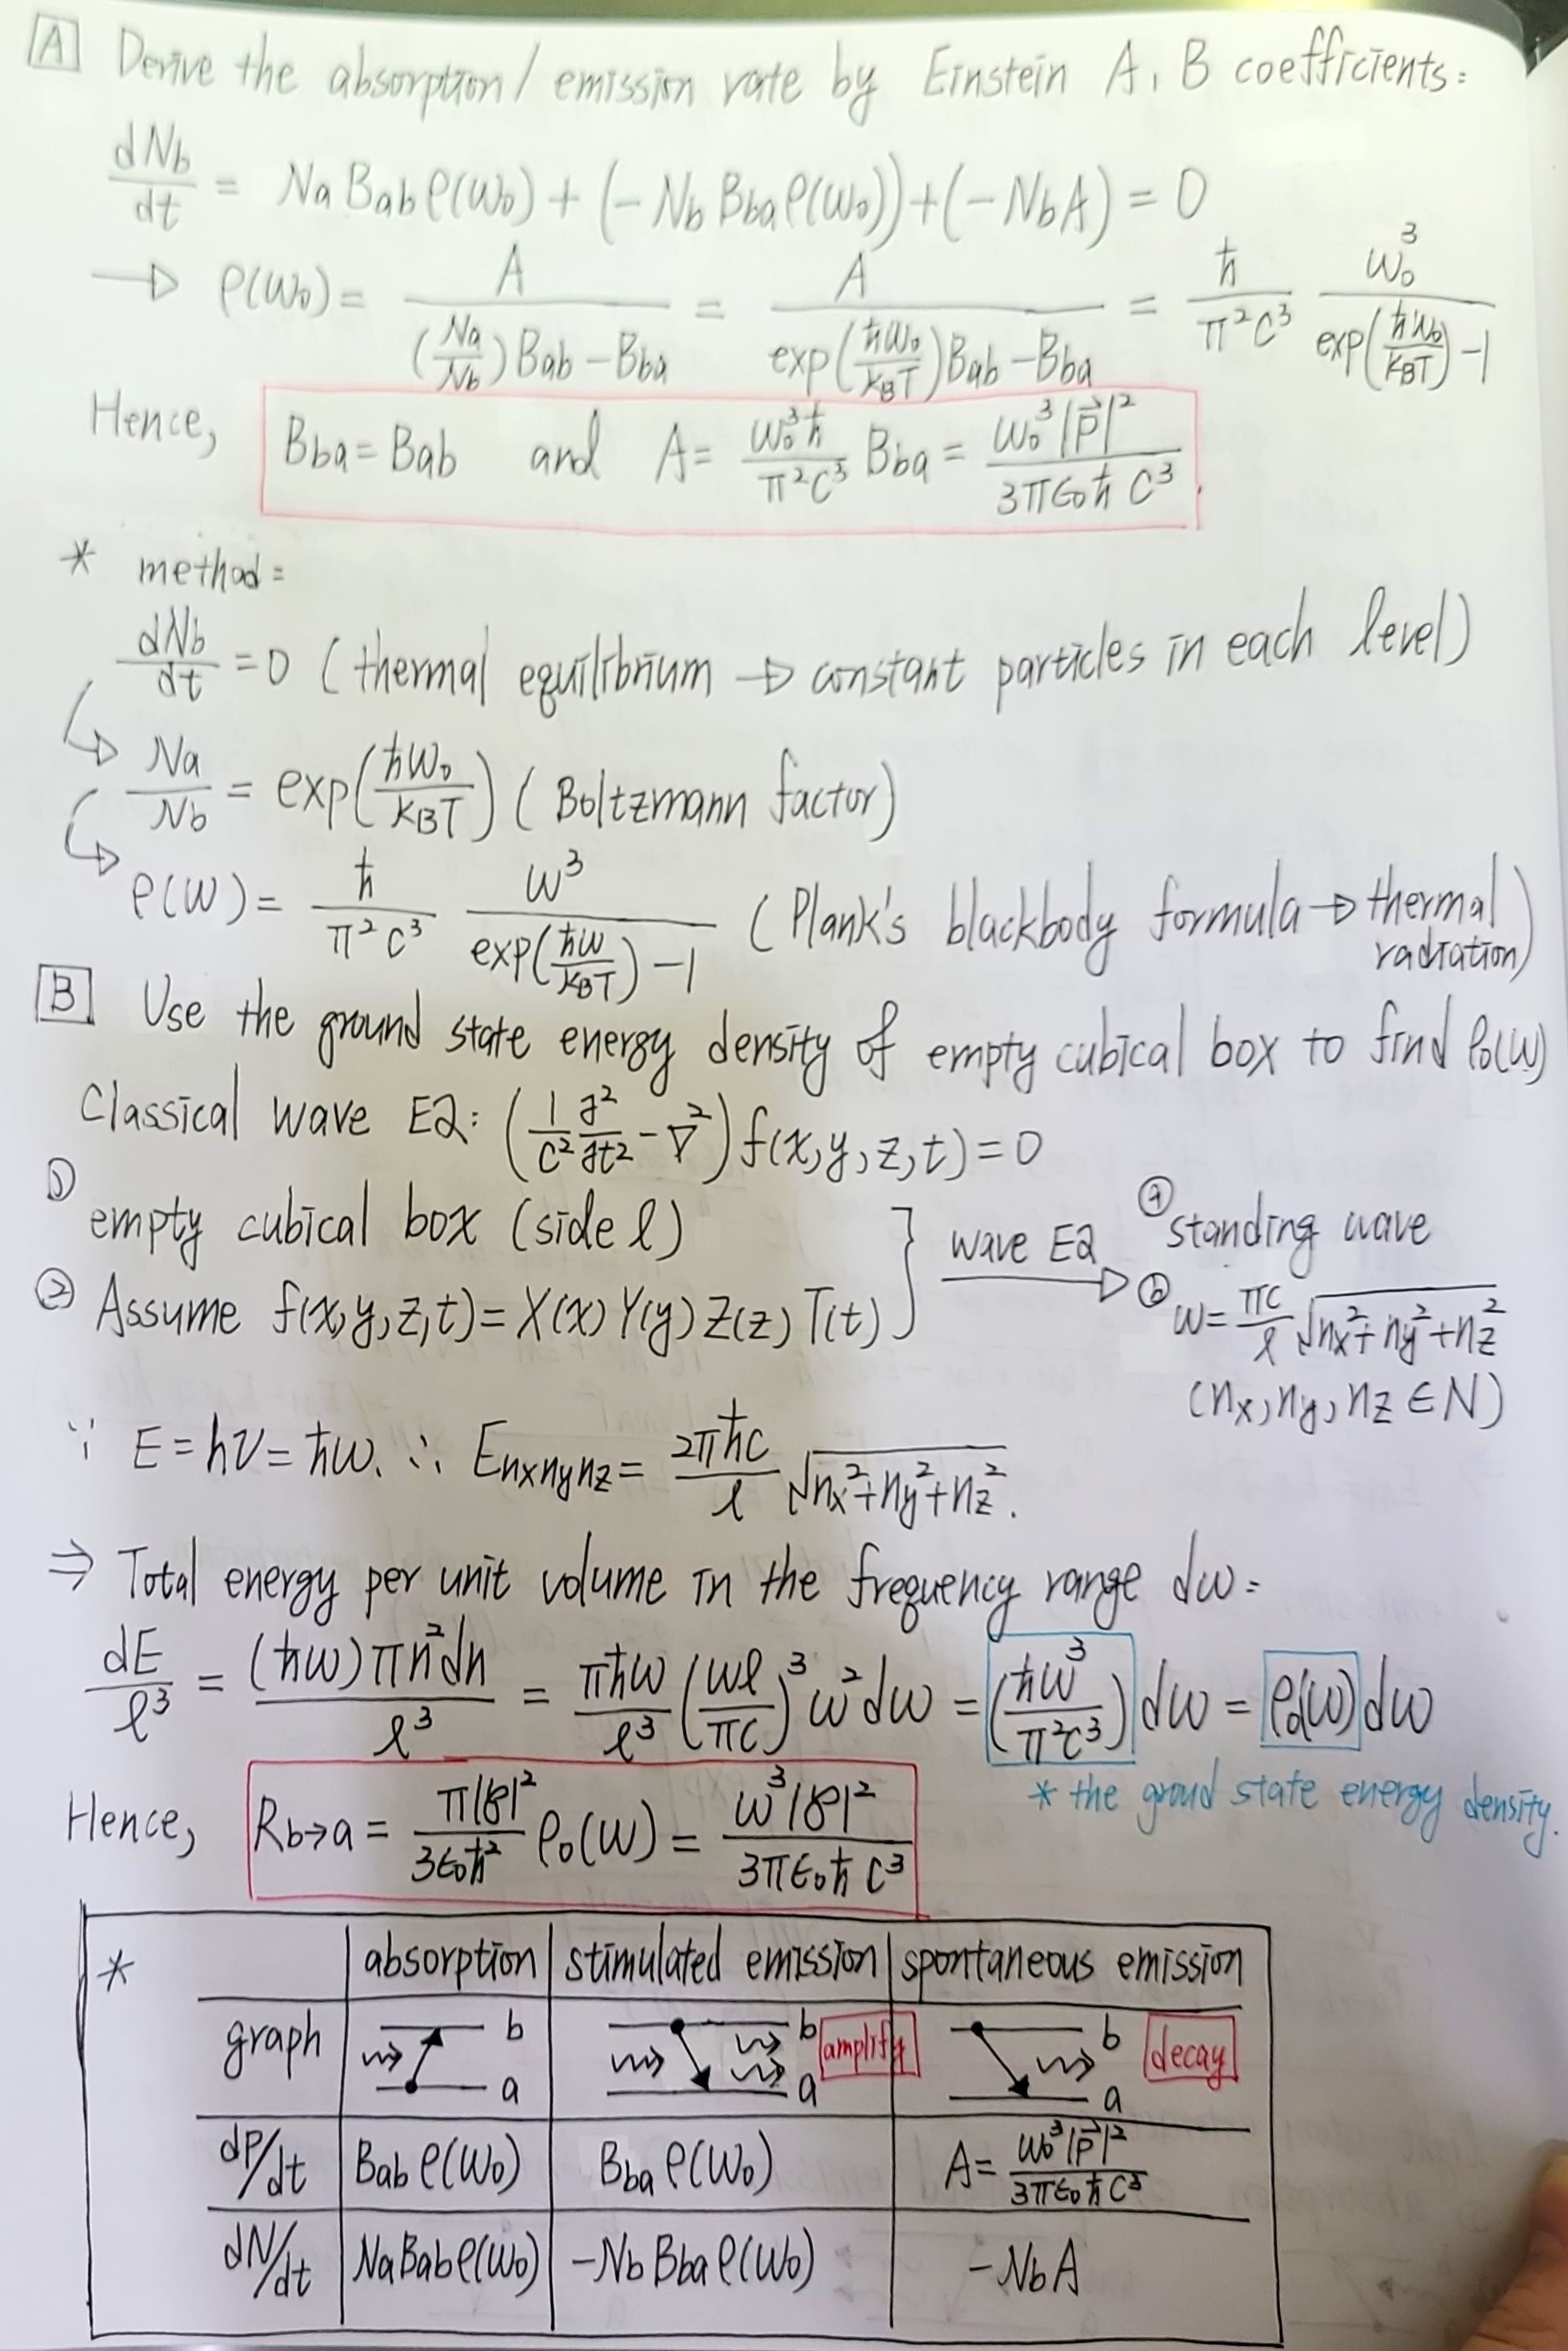 [A] Derive the absorption / emission rate by Einstein A, B coefficients:
dNb/dt = Na Bab ρ(ω₀) + (-Nb Bba ρ(ω₀)) + (-Nb A) = 0
→ ρ(ω₀) = A / ((Na/Nb) Bab - Bba) = A / (exp(ħω₀/kBT) Bab - Bba) = ħ/(π²c³) ω₀³/(exp(ħω₀/kBT) - 1)
Hence, Bba = Bab and A = (ω₀³ħ/π²c³) Bba = ω₀³|p⃗|²/(3πε₀ħc³).
* method:
dNb/dt = 0 (thermal equilibrium → constant particles in each level)
↳ Na/Nb = exp(ħω₀/kBT) (Boltzmann factor)
↳ ρ(ω) = ħ/(π²c³) ω³/(exp(ħω/kBT) - 1) (Plank's blackbody formula → thermal radiation)
[B] Use the ground state energy density of empty cubical box to find ρ₀(ω)
Classical wave EQ: (1/c² ∂²/∂t² - ∇²) f(x,y,z,t) = 0
① empty cubical box (side ℓ)
② Assume f(x,y,z,t) = X(x) Y(y) Z(z) T(t)
} wave EQ →
ⓐ standing wave
ⓑ ω = πc/ℓ √(nx²+ny²+nz²)
(nx, ny, nz ∈ N)
∵ E = hν = ħω. ∴ Enxnynz = 2πħc/ℓ √(nx²+ny²+nz²).
⇒ Total energy per unit volume in the frequency range dω:
dE/ℓ³ = (ħω)πn²dn/ℓ³ = πħω/ℓ³ (ωℓ/πc)³ ω²dω = (ħω³/π²c³) dω = ρ₀(ω) dω
* the groud state energy density.
Hence, Rb→a = π|℘|²/(3ε₀ħ²) ρ₀(ω) = ω³|℘|²/(3πε₀ħc³)
* absorption stimulated emission spontaneous emission
graph b a b a amplify b a decay
dP/dt Bab ρ(ω₀) Bba ρ(ω₀) A = ω₀³|p⃗|²/(3πε₀ħc³)
dN/dt Na Bab ρ(ω₀) -Nb Bba ρ(ω₀) -Nb A